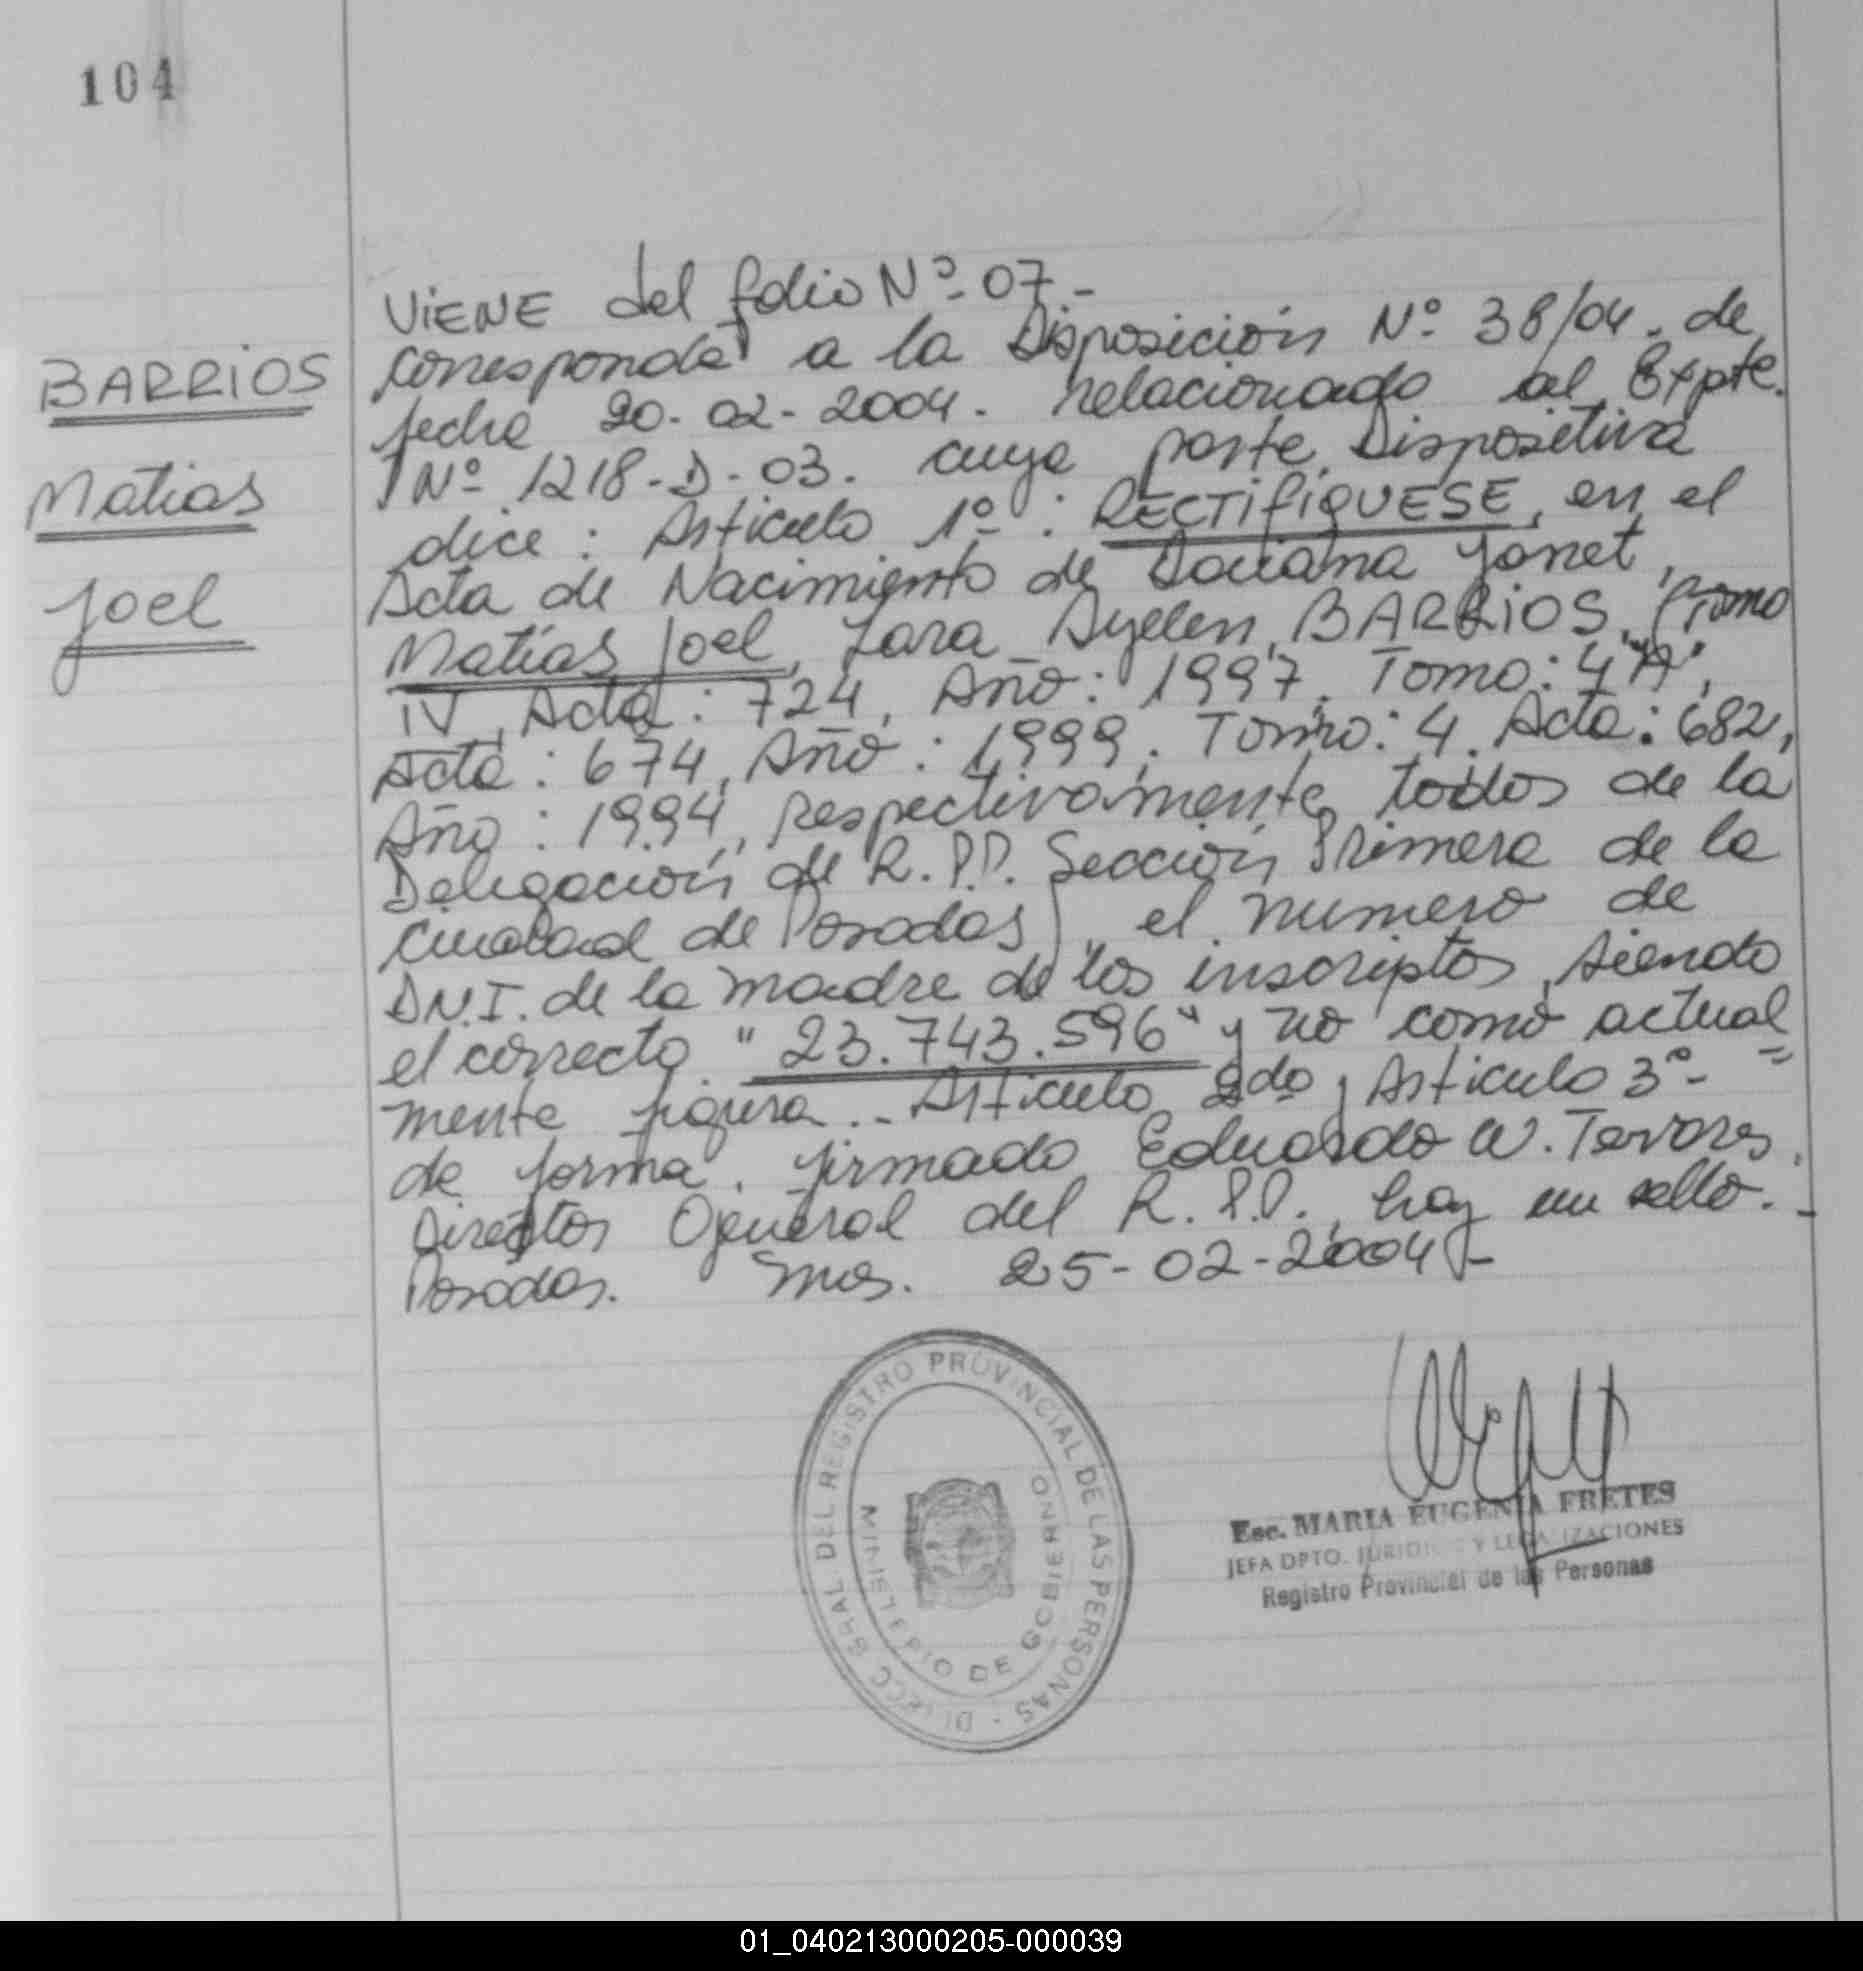 104
BARRIOS
Matias
Joel
VIENE del folio Nº 07.-
corresponde a la Disposición Nº 38/04. de
fecha 20-02-2004. relacionado al Expte.
Nº 1218-D-03. cuya parte Dispositiva
dice: Articulo 1º: RECTIFIQUESE, en el
Acta de Nacimiento de Daiana Janet,
Matías Joel, Lara Ayelen, BARRIOS, (Tomo
IV, Acta: 724, Año: 1997, Tomo: 4 "A",
Acta: 674, Año: 1999. Tomo: 4. Acta: 682,
Año: 1994, respectivamente, todos de la
Delegación de R.P.P. Sección Primera de la
Ciudad de Posadas), el numero de
D.N.I. de la madre de los inscriptos, siendo
el correcto "23.743.596" y no como actual
mente figura.- Articulo 2do y Articulo 3º-
de forma. firmado Eduardo W. Tavares.
Director General del R.P.P., hay un sello.-
Posadas. Mns. 25-02-2004.-
DIRECC GRAL DEL REGISTRO PROVINCIAL DE LAS PERSONAS -
MINISTERIO DE GOBIERNO
Esc. MARIA EUGENIA FRETES
JEFA DPTO. JURIDICO Y LEGALIZACIONES
Registro Provincial de las Personas
01_040213000205-000039